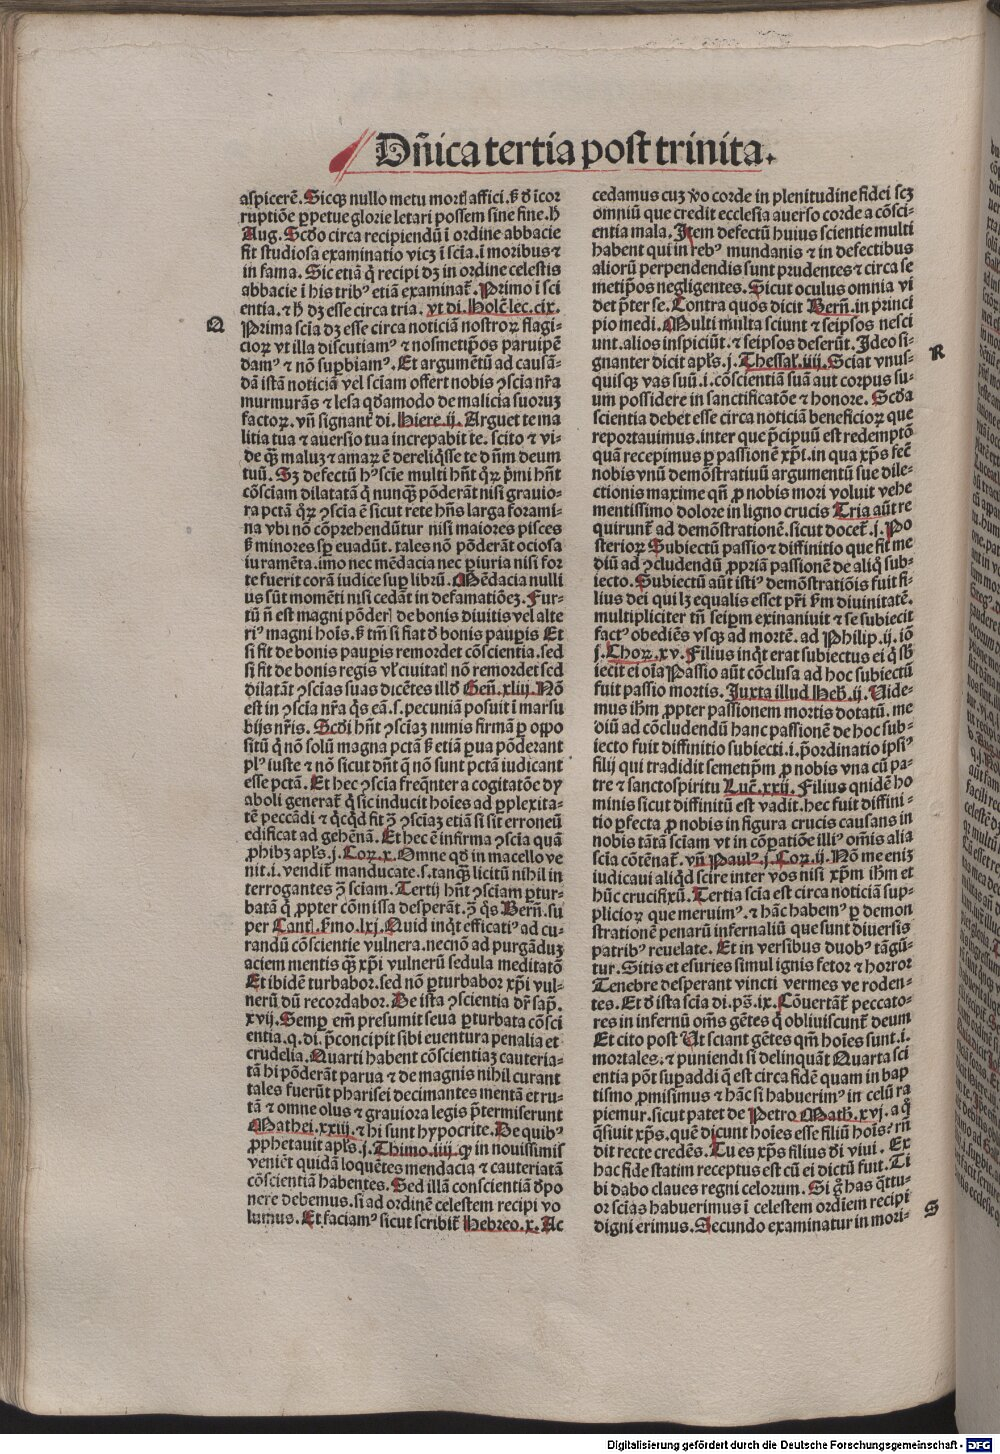 Dñica tertia post trinita.
aspicerē. Sicq̄ nullo metu mortꝭ affici. ꝭ d̄ īcor
ruptiōe ꝑpetue glorie letari possem sine fine. h̄
Aug. Scđo circa recipiendū ī ordine abbacie
fit studiosa examinatio vicꝫ ī sciā. ī moribus ⁊
in fama. Sic etiā q̄ recipi dꝫ in ordine celestis
abbacie ī his tribꝰ etiā examinat᷑. Primo ī sci
entia. ⁊ h̄ dꝫ esse circa tria. vt di. Holc̄. lec. cix.
Q
Prima sciā dꝫ esse circa noticiā nostroꝝ flagi-
cioꝝ vt illa discutiamꝰ ⁊ nosmetip̄os paruipē
damꝰ ⁊ nō suꝑbiamꝰ. Et argumētū ad causā-
dā istā noticiā vel sciam offert nobis ꝯscia nr̄a
murmurās ⁊ lesa qđamodo de malicia suoruꝫ
factoꝝ. vñ signant᷑ di. Hiere. ij. Arguet te ma
litia tua ⁊ auersio tua increpabit te. scito ⁊ vi-
de qꝫ maluꝫ ⁊ amaꝝ ē dereliq̄sse te dñm deum
tuū. Sꝫ defectū hꝰ scīe multi hñt q̄ꝝ p̄mi hñt
cōsciam dilatatā q̄ nunqꝫ pōderāt nisi grauio-
ra pctā q̄ꝝ ꝯscia ē sicut rete hñs larga forami-
na vbi nō cōprehendūtur nisi maiores pisces
ꝭ minores sꝑ euadūt. tales nō pōderāt ociosa
iuramēta. imo nec mēdacia nec ꝑiuria nisi for
te fuerit corā iudice suꝑ librū. Mēdacia nulli
us sūt momēti nisi cedāt in defamatiōeꝫ. Fur-
tū ñ est magni pōderꝭ de bonis diuitis vel alte
riꝰ magni hoīs. ꝭ tm̄ si fiat đ bonis pauꝑis Et
si fit de bonis pauꝑis remordet cōscientia. sed
si fit de bonis regis vl̓ cuitatꝭ nō remordet sed
dilatāt ꝯscias suas dicētes illđ Geñ. xliij. Nō
est in ꝯscia nr̄a q̄s eā. s. pecuniā posuit ī marsu
bijs nr̄is. Scđi hñt ꝯsciaꝫ nimis firmā ꝑ oppo
sitū q̄ nō solū magna pctā ꝭ etiā ꝑua pōderant
plꝰ iuste ⁊ nō sicut dñt q̄ nō sunt pctā iudicant
esse pctā. Et hec ꝯscia freq̄nter a cogitatōe dy
aboli generat᷑ q̄ sic inducit hoīes ad ꝑplexita-
tē peccādi ⁊ q̄cqđ fit ꝫ̄ ꝯsciaꝫ etiā si sit erroneū
edificat ad gehēnā. Et hec ē infirma ꝯscia quā
ꝓhibꝫ apłs. j. Corꝝ. x. Omne qđ in macello ve
nit. i. vendit᷑ manducate. s. tanqꝫ licitū nihil in
terrogantes ꝫ̄ sciam. Tertij hñt ꝯsciam ꝑtur-
batā q̄ ꝓpter cōmissa desperāt. ꝫ̄ q̄s Berñ. su
per Cantꝭ. ẜmo. lxj. Quid inq̄t efficatiꝰ ad cu-
randū cōscientie vulnera. necnō ad purgāduꝫ
aciem mentis qꝫ xp̄i vulnerū sedula meditatō
Et ibidē turbabor. sed nō ꝑturbabor xp̄i vul-
nerū dū recordabor. De ista ꝯscientia dr̄ sap̄.
xvij. Semꝑ em̄ presumit seua ꝑturbata cōsci
entia. q. di. p̄concipit sibi euentura penalia et
crudelia. Quarti habent cōscientiaꝫ cauteria-
tā hi pōderāt parua ⁊ de magnis nihil curant
tales fuerūt pharisei decimantes mentā et ru-
tā ⁊ omne olus ⁊ grauiora legis p̄termiserunt
Mathei. xxiij. ⁊ hi sunt hypocrite. De quibꝰ
ꝓphetauit apłs. j. Thimo. iiij. ꝙ in nouissimis
veniēt quidā loquētes mendacia ⁊ cauteriatā
cōscientiā habentes. Sed illā conscientiā đpo
nere debemus. si ad ordinē celestem recipi vo
lumus. Et faciamꝰ sicut scribit᷑ Hebreo. x. Ac
cedamus cuꝫ v̄o corde in plenitudine fidei scꝫ
omniū que credit ecclesia auerso corde a cōsci-
entia mala. Item defectū huius scientie multi
habent qui in rebꝰ mundanis ⁊ in defectibus
aliorū perpendendis sunt prudentes ⁊ circa se
metip̄os negligentes. Sicut oculus omnia vi
det p̄ter se. Contra quos dicit Berñ. in princi
pio medi. Multi multa sciunt ⁊ seipsos nesci
unt. alios inspiciūt. ⁊ seipsos deserūt. Ideo si-
R
gnanter dicit apłs. j. Thessał. iiij. Sciat vnus-
quisqꝫ vas suū. i. cōscientiā suā aut corpus su-
um possidere in sanctificatōe ⁊ honore. Scđa
scientia debet esse circa noticiā beneficioꝝ que
reportauimus. inter que p̄cipuū est redemptō
quā recepimus ꝑ passionē xp̄i. in qua xp̄s fec̄
nobis vnū demōstratiuū argumentū sue dile-
ctionis maxime qñ ꝓ nobis mori voluit vehe
mentissimo dolore in ligno crucis Tria aūt re
quirunt᷑ ad demōstrationē. sicut docet᷑. j. Po
sterioꝝ Subiectū passio ⁊ diffinitio que fit me
diū ad ꝯcludendū ꝓpriā passionē de aliq̄ sub-
iecto. Subiectū aūt istiꝰ demōstratiōis fuit fi-
lius dei qui lꝫ equalis esset pr̄i ẜm diuinitatē.
multipliciter tñ seip̄m exinaniuit ⁊ se subiecit
factꝰ obediēs vsqꝫ ad mortē. ad Philip. ij. iō
j. Choꝝ. xv. Filius inq̄t erat subiectus ei q̄ sb̄
iecit ei oīa Passio aūt cōclusa ad hoc subiectū
fuit passio mortis. Juxta illud Heb̄. ij. Vide-
mus ihm̄ ꝓpter passionem mortis dotatū. me
diū ad cōcludendū hanc passionē de hoc sub-
iecto fuit diffinitio subiecti. i. p̄ordinatio ipsiꝰ
filij qui tradidit semetip̄m ꝓ nobis vna cū pa-
tre ⁊ sanctospiritu Luc̄. xxij. Filius qnidē ho
minis sicut diffinitū est vadit. hec fuit diffini-
tio ꝑfecta ꝓ nobis in figura crucis causans in
nobis tātā sciam vt in cōꝑatiōe illiꝰ om̄is alia
scia cōtēnat᷑. vñ Paulꝰ. j. Coꝝ. ij. Nō me eniꝫ
iudicaui aliqđ scire inter vos nisi xp̄m ihm̄ et
hūc crucifixū. Tertia scia est circa noticiā sup-
plicioꝝ que meruimꝰ. ⁊ hāc habemꝰ ꝑ demon
strationē penarū infernaliū que sunt diuersis
patribꝰ reuelate. Et in versibus duobꝰ tāgū-
tur. Sitis et esuries simul ignis fetor ⁊ horror
Tenebre desperant vincti vermes ve roden-
tes. Et đ ista scia di. ps̄. ix. Cōuertāt᷑ peccato-
res in infernū om̄s gētes q̄ obliuiscunt᷑ deum
Et cito post Ut sciant gētes qm̄ hoīes sunt. i.
mortales. ⁊ puniendi si delinquāt Quarta sci
entia pōt suꝑaddi q̄ est circa fidē quam in bap
tismo ꝓmisimus ⁊ hāc si habuerimꝰ in celū ra
piemur. sicut patet de Petro Math̄. xvj. a q̄
q̄siuit xp̄s. quē dicunt hoīes esse filiū hoīs? rñ
dit recte credēs. Tu es xp̄s filius đi viui. Ex
hac fide statim receptus est cū ei dictū fuit. Ti
bi dabo claues regni celorum. Si g̊ has q̄ttu-
or scīas habuerimus ī celestem ordīem recipi
S
digni erimus. Secundo examinatur in mori-
Digitalisierung gefördert durch die Deutsche Forschungsgemeinschaft - DFG